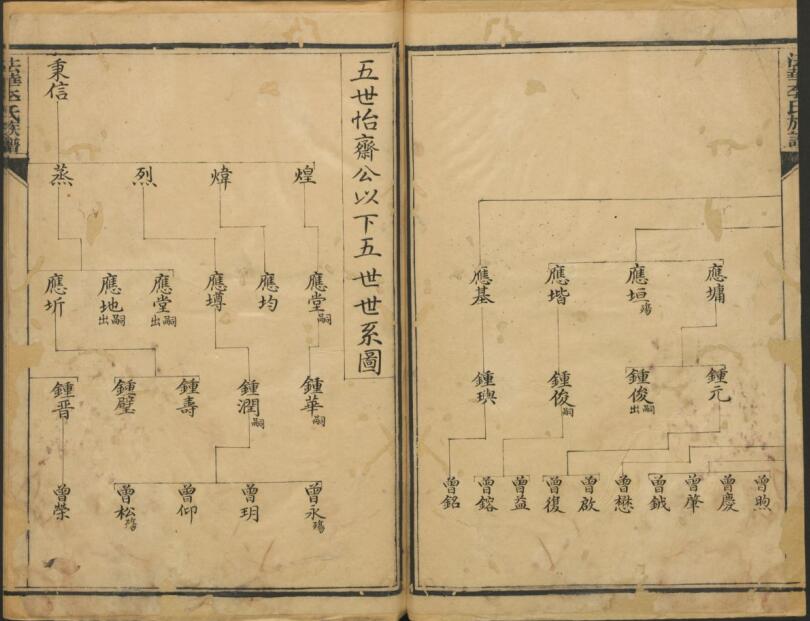 法華李氏族譜
應墉
應垣殤
應堦
應基
鍾元
鍾俊嗣出
鍾俊嗣
鍾璵
曾煦
曾慶
曾肇
曾鉞
曾懋
曾啟
曾復
曾益
曾鎔
曾銘
五世怡齋公以下五世世系圖
秉信
煌
煒
烈
蒸
應堂嗣
應均
應壿
應堂嗣出
應地嗣出
應圻
鍾華嗣
鍾潤嗣
鍾壽
鍾璧
鍾晋
曾永殤
曾玥
曾仰
曾松殤
曾榮
法華李氏族譜